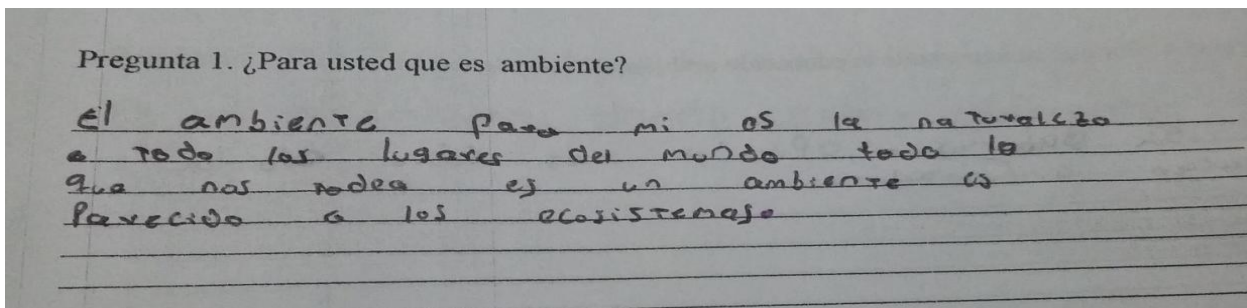 Pregunta 1. ¿Para usted que es ambiente?
El ambiente para mi es la naturaleza
o todo las lugares del mundo todo lo
que nos rodea es un ambiente es
Parecido a los ecosistemas.